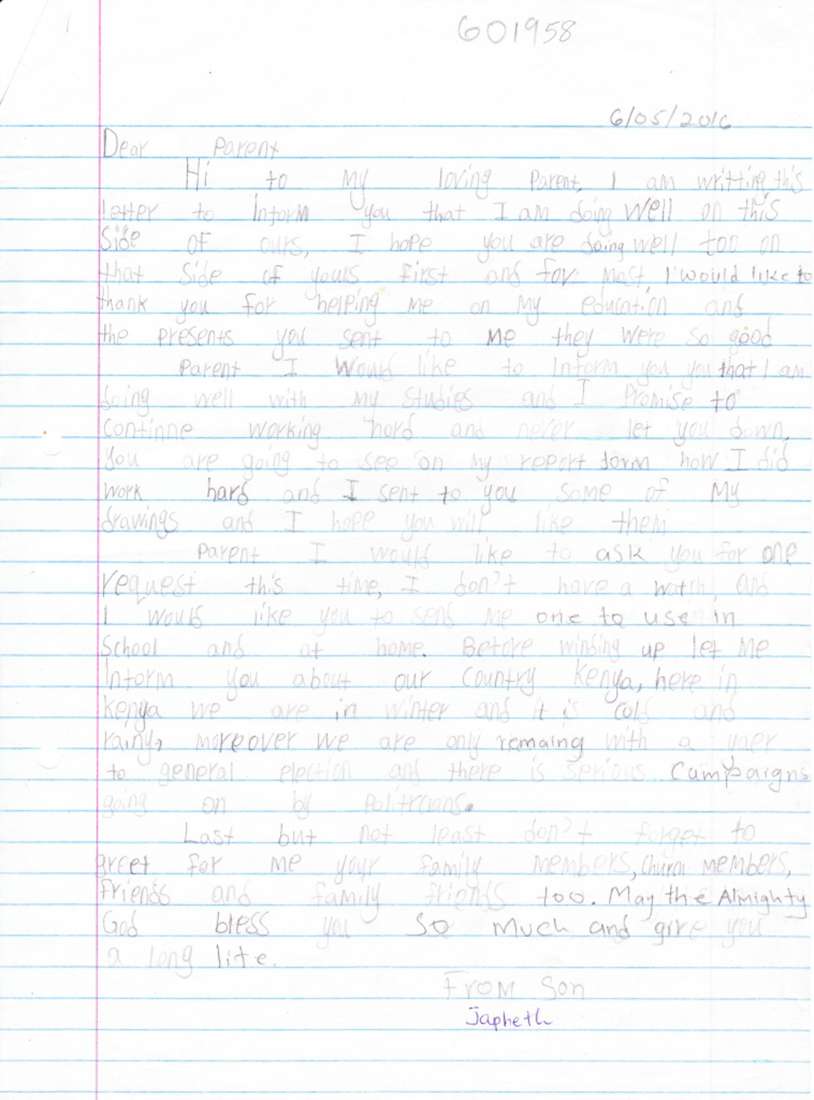 601958
6/05/2016
Dear Parent
Hi to my loving Parent, I am writting this
letter to Inform you that I am doing well on this
Side of ours, I hope you are doing well too on
that Side of yours first and for most I would like to
thank you for helping me on my education and
the presents you sent to me they were so good
Parent I would like to Inform you you that I am
doing well with my studies and I Promise to
continue working hard and never let you down,
You are going to see on my report form how I did
work hard and I sent to you some of My
drawings and I hope you will like them
Parent I would like to ask you for one
request this time, I don't have a watch, and
I would like you to send me one to use in
School and at home. Before winding up let Me
Inform you about our Country Kenya, here in
Kenya we are in winter and it is cold and
rainy, moreover we are only remaing with a yaer
to general election and there is serious Campaigns
going on by Politicians.
Last but not least don't forget to
greet for me your family members, Church members,
friends and family friends too. May the Almighty
God bless you so much and give you
a long life.
From Son
Japheth